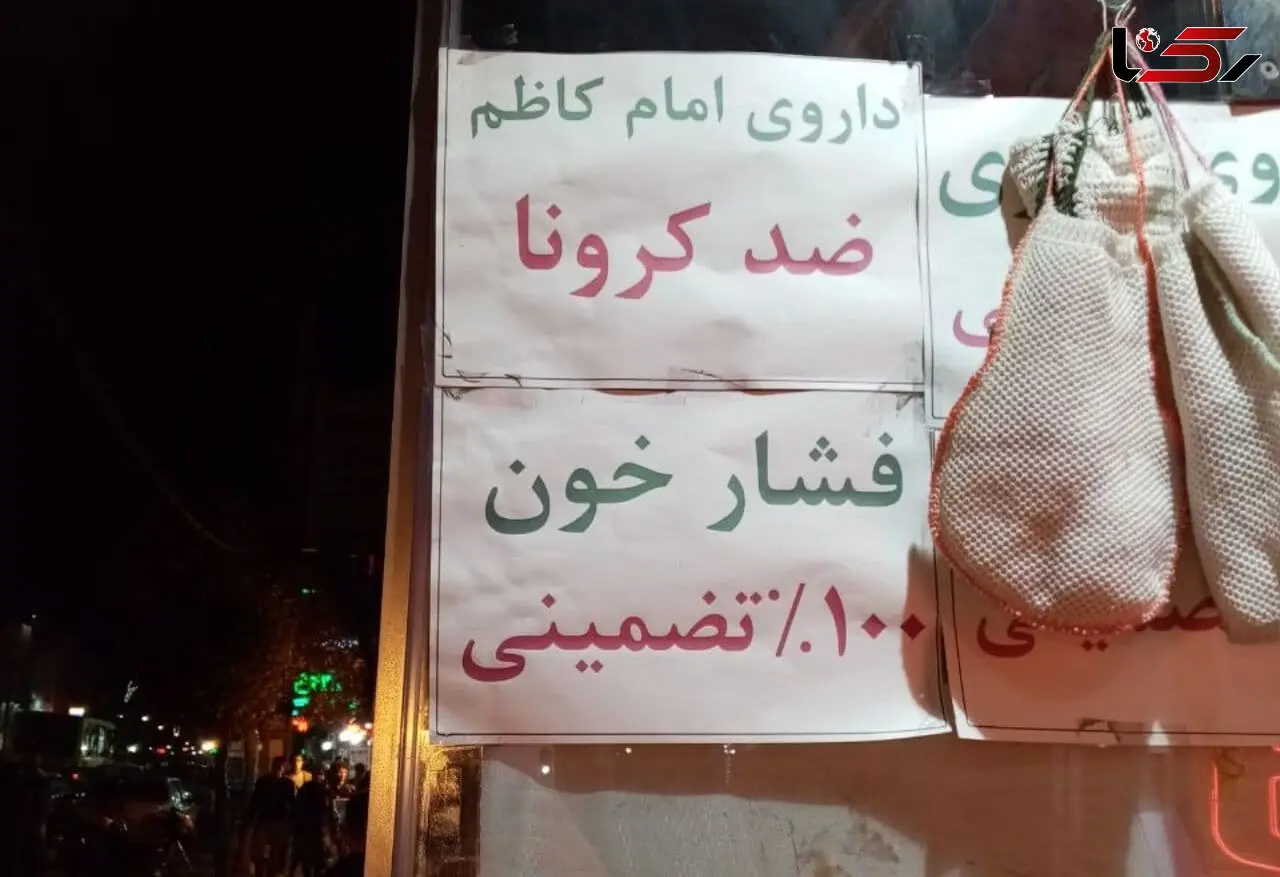 رکنا
داروی امام کاظم
ضد کرونا
فشار خون
۱۰۰٪ تضمینی